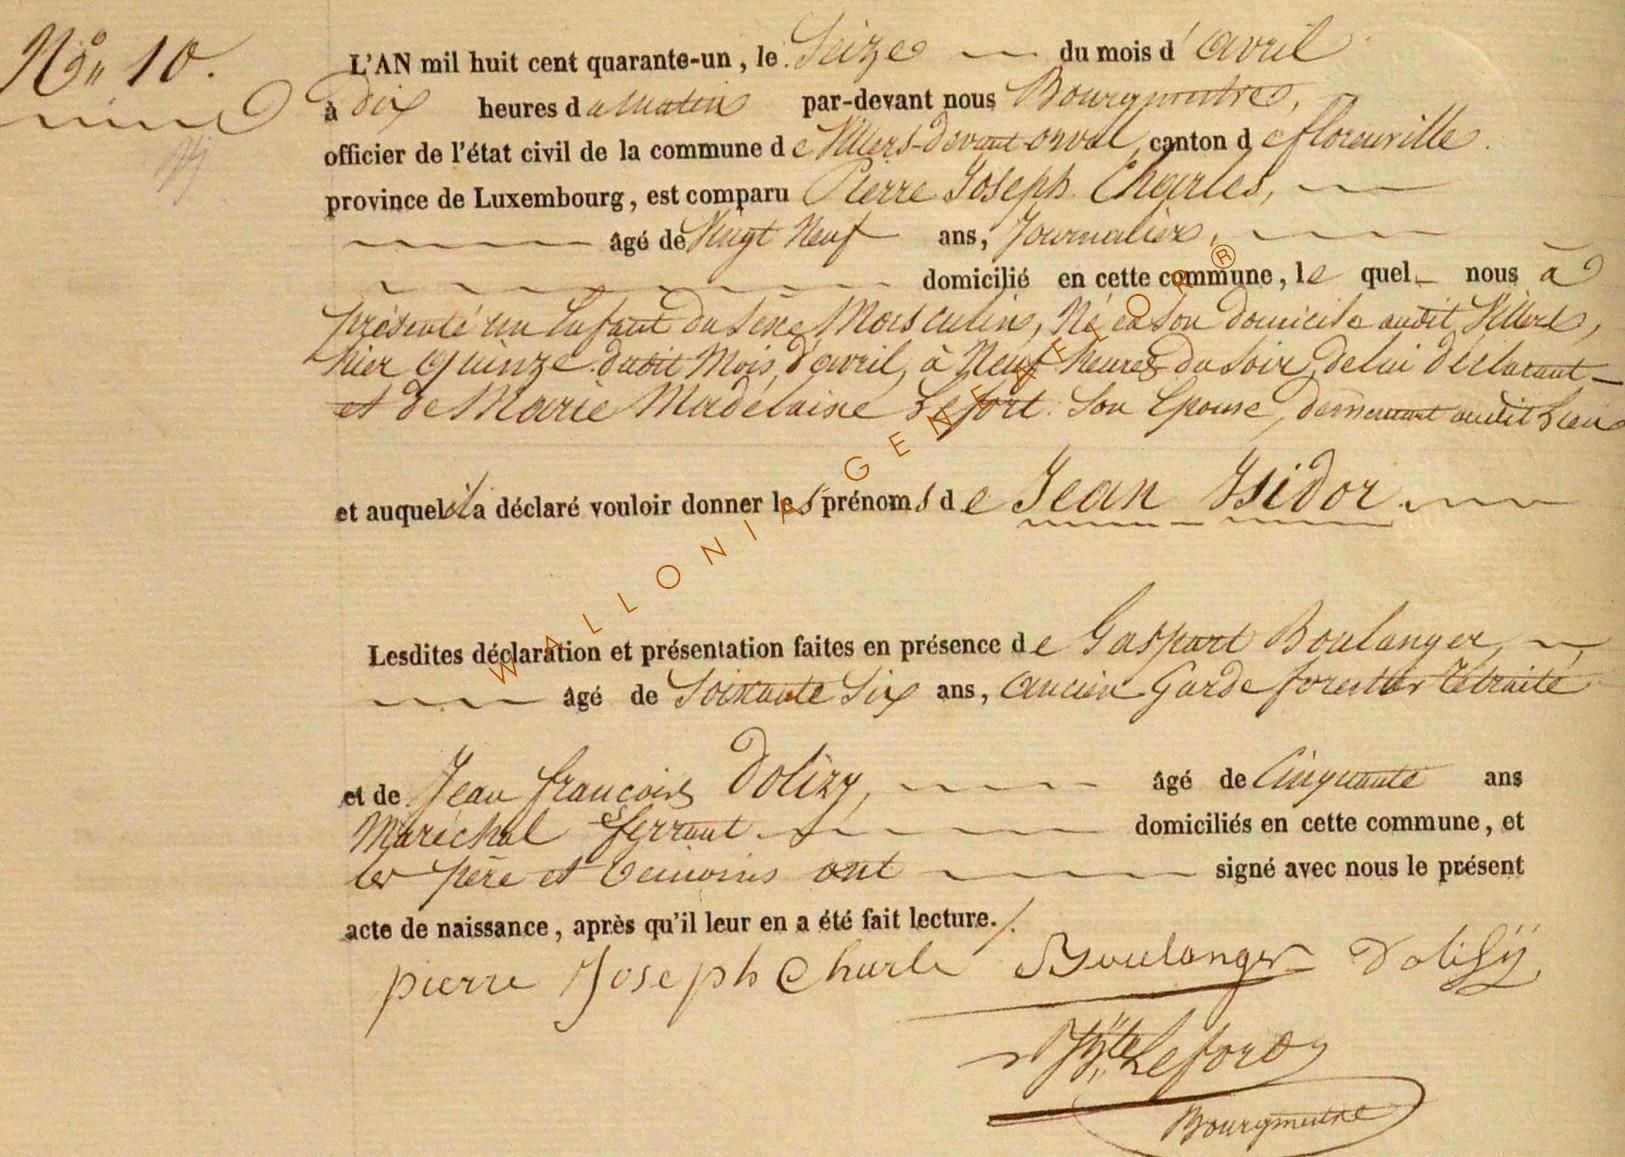 N° 10.
L'AN mil huit cent quarante-un, le Seize du mois d'avril
à dix heures du Matin par-devant nous Bourgmestre,
officier de l'état civil de la commune de Villers-devant-orval, canton de florenville.
province de Luxembourg, est comparu Pierre Joseph Charles,
âgé de Vingt Neuf ans, Journalier,
domicilié en cette commune, le quel nous à
présenté un Enfant du Sexe Masculin, Né en son domicile audit Villers,
hier quinze dudit Mois d'avril, à Neuf heures du soir, de lui déclarant
et de Marie Madélaine Lefort Son Epouse, demeurant audit Lieu
et auquel il a déclaré vouloir donner les prénoms de Jean Isidor
Lesdites déclaration et présentation faites en présence de Gaspart Boulanger,
âgé de Soixante Six ans, ancien Garde forestier retraité
et de Jean françois Dolizy, âgé de Cinquante ans
Maréchal ferrant domiciliés en cette commune, et
les père et témoins ont signé avec nous le présent
acte de naissance, après qu'il leur en a été fait lecture./.
pierre Joseph Charle Boulanger Dolisÿ
Lefort
Bourgmestre
WALLONIA GENEALOR ®